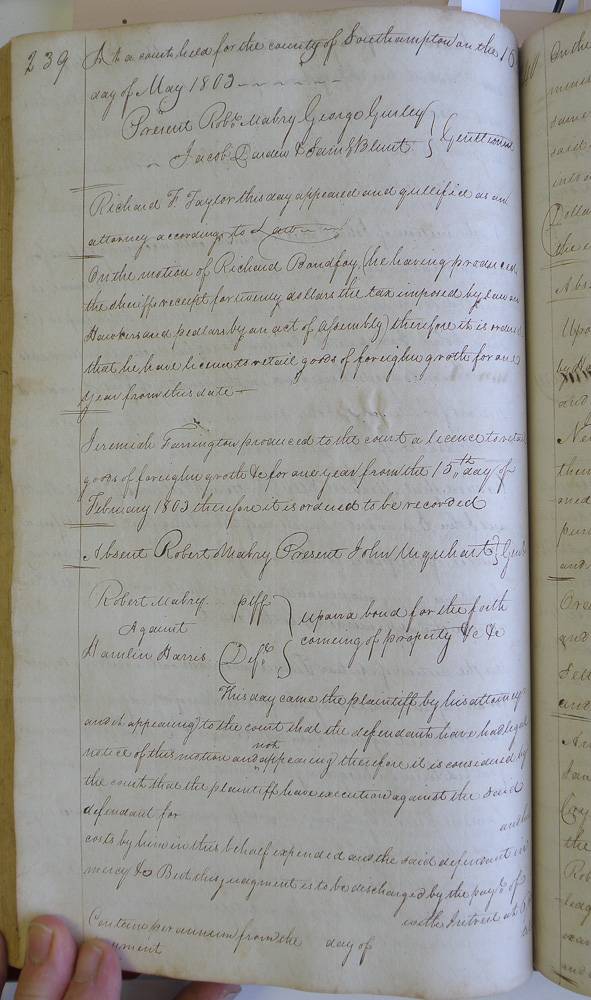 239
At a court held for the county of Southampton on the 15
day of May 1803
Present Robt. Mabry George Gurley
Jacob Darden & Saml Blunt } Gentlemen
Richard F. Taylor this day appeared and qullified as an
attorney according to Law
On the motion of Richard (he having produced
the sheriffs receipt for twenty dollars the tax imposed by law on
Hawkers and pedlars by an act of assembly) therefore it is ordered
that he have licence to retail goods of foreighn groth for one
year from this date
Jeremiah Farrington produced to the court a licence to retail
goods of foreighn groth &c for one year from the 15th day of
February 1803 therefore it is ordered to be recorded
Absent Robert Mabry Present John Urquhart } Gent
Robert Mabry plff
Against
Hamlin Harris Deft.
upon a bond for the forth
coming of property &c &c
This day came the plaintiff by his attorney
and it appearing to the court that the defendants have had legal
notice of this motion and not appearing therefore it is considered by
the court that the plaintiff have execution against the said
defendant for and
costs by him in this behalf expended and the said defendant in
mercy &c But this judgment is to be discharged by the payt. of
with Intrest at 6
Centum per annum from the day of